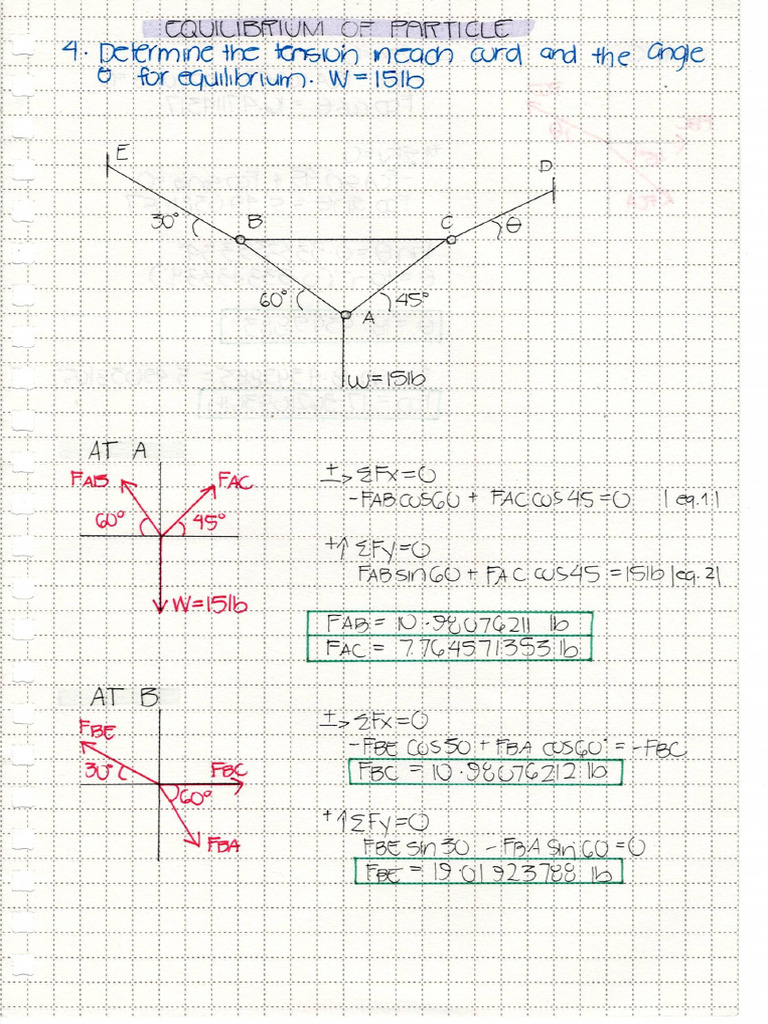 EQUILIBRIUM OF PARTICLE
4. Determine the tension in each cord and the angle
θ for equilibrium. W = 15lb
E
D
30°
B
C
θ
60°
45°
A
W=15lb
AT A
FAB
FAC
60°
45°
W=15lb
+→ ΣFx=0
-FABCOS60 + FACCOS45=0 |eq.1|
+↑ ΣFy=0
FABsin60 + FAC cos45 =15lb |eq.2|
FAB = 10.98076211 lb
FAC = 7.764571353 lb
AT B
FBE
30°
FBC
60°
FBA
+→ ΣFx=0
-FBE COS30 + FBA COS60° = -FBC
FBC = 10.98076212 lb
+↑ ΣFy=0
FBE sin 30 - FBA sin 60 = 0
FBE = 19.01923788 lb